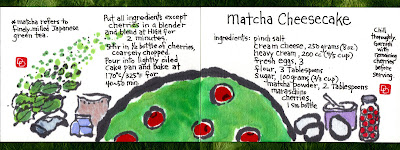 * matcha refers to
finely-milled Japanese
green tea.
Put all ingredients except
cherries in a blender
and blend at HIGH for
2 minutes.
Stir in ½ bottle of cherries,
coarsely chopped.
Pour into lightly oiled
cake pan and bake at
170°C/325°F for
40-50 min.
Matcha Cheesecake
ingredients: pinch salt
cream cheese, 250 grams (8oz)
heavy cream, 200 cc (4/5 cup)
fresh eggs, 3
flour, 3 Tablespoons
sugar, 100 grams (1/2 cup)
*matcha powder, 2 Tablespoons
maraschino
cherries,
1 sm bottle
Chill
thoroughly.
Garnish
with
remaining
cherries
before
serving.